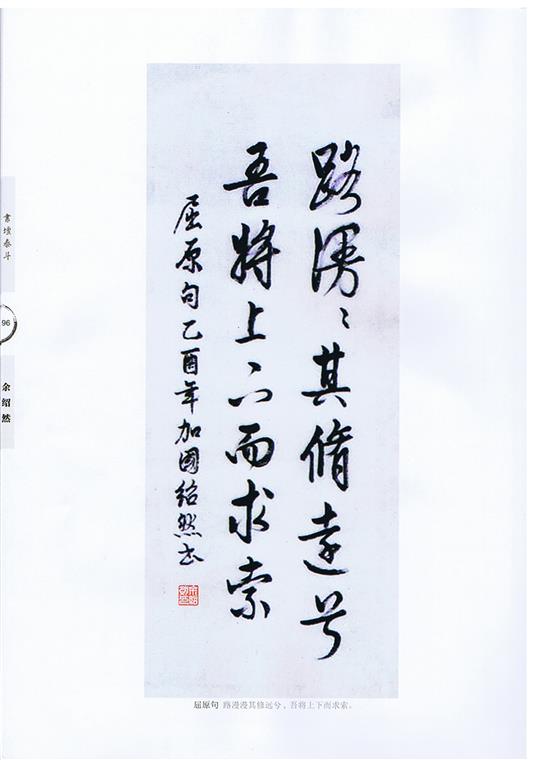 路漫〻其脩遠兮
吾將上下而求索
屈原句乙酉年加國紹然书
書壇泰斗
96
余绍然
屈原句 路漫漫其修远兮，吾将上下而求索。